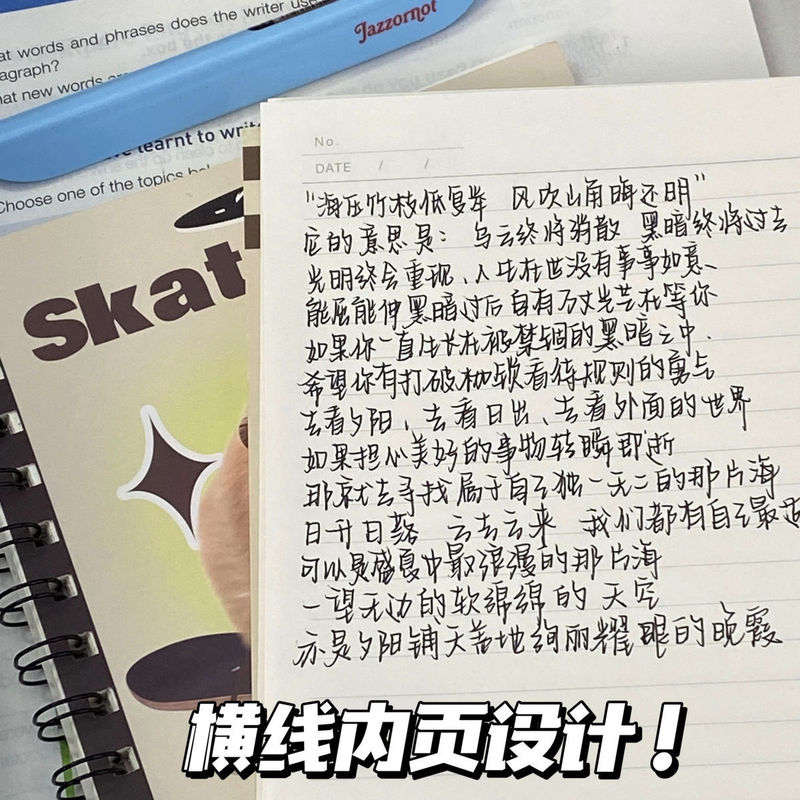 at words and phrases does the writer use
agraph?
hat new words are
Jazzornot
learnt to write
Choose one of the topics
Skat
No.
DATE / /
"海压竹枝低复举 风吹山角晦还明"
它的意思是：乌云终将消散 黑暗终将过去
光明终会重现、人生在世没有事事如意、
能屈能伸黑暗过后自有万丈光芒在等你
如果你一直生长在被禁锢的黑暗之中.
希望你有打破枷锁看待规则的勇气
去看夕阳，去看日出、去看外面的世界
如果担心美好的事物转瞬即逝
那就去寻找属于自己独一无二的那片海
日升日落 云去云来 我们都有自己最
可以是盛夏中最浪漫的那片海
一望无边的软绵绵的天空
亦是夕阳铺天盖地绚丽耀眼的晚霞
横线内页设计！